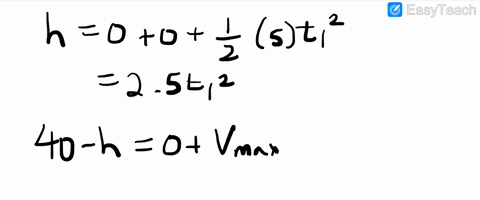 EasyTeach
h = 0 + 0 + 1/2 (5)t₁²
= 2.5t₁²
40 - h = 0 + Vmax